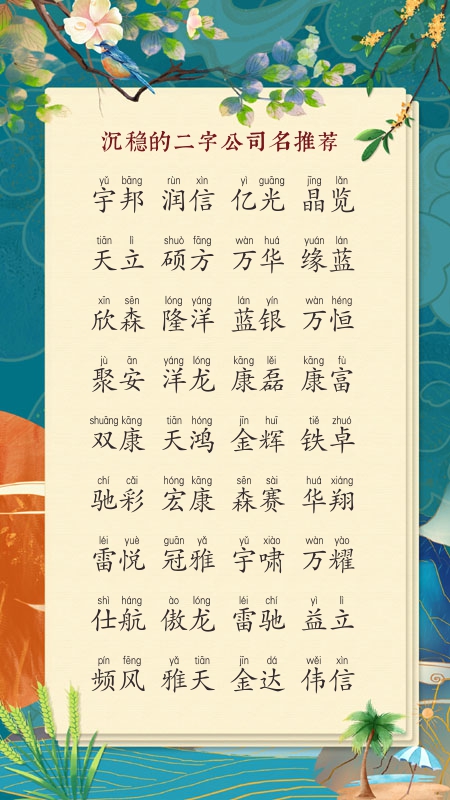 沉稳的二字公司名推荐
yǔ bāng rùn xìn yì guāng jīng lǎn
宇邦 润信 亿光 晶览
tiān lì shuò fāng wàn huá yuán lán
天立 硕方 万华 缘蓝
xīn sēn lóng yáng lán yín wàn héng
欣森 隆洋 蓝银 万恒
jù ān yáng lóng kāng lěi kāng fù
聚安 洋龙 康磊 康富
shuāng kāng tiān hóng jīn huī tiě zhuó
双康 天鸿 金辉 铁卓
chí cǎi hóng kāng sēn sài huá xiáng
驰彩 宏康 森赛 华翔
léi yuè guān yǎ yǔ xiào wàn yào
雷悦 冠雅 宇啸 万耀
shì háng ào lóng léi chí yì lì
仕航 傲龙 雷驰 益立
pín fēng yǎ tiān jīn dá wěi xìn
频风 雅天 金达 伟信